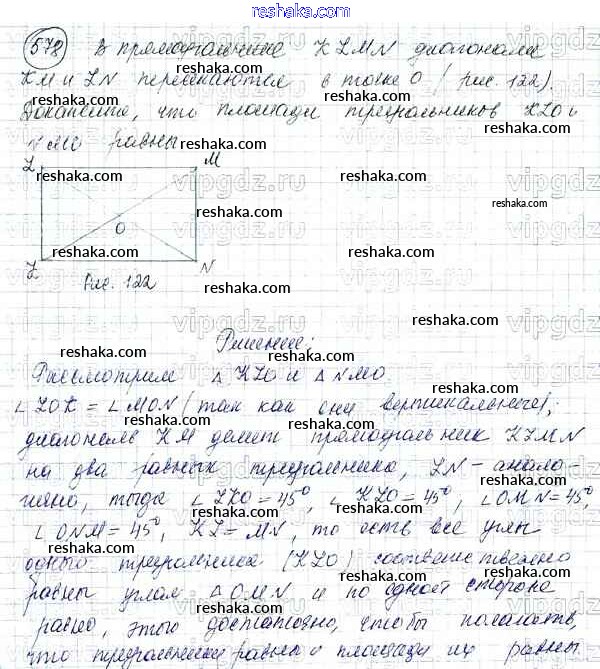 reshaka.com
578 В прямоугольнике KLMN диагонали
KM и LN пересекаются в точке О (рис. 122).
Докажите, что площади треугольников KLO и
NMO равны
L M
O
N
Рис. 122
Решение:
Рассмотрим △ KLO и △ NMO.
∠ LOK = ∠ MON (так как они вертикальные),
диагональ KM делит прямоугольник KLMN
на два равных треугольника, LN – анало-
гично, тогда ∠ LKO = 45°, ∠ KLO = 45°, ∠ OMN = 45°,
∠ ONM = 45°, KL = MN, то есть все углы
одного треугольника (KLO) соответственно
равны углам △ OMN и по одной стороне
равно, этого достаточно, чтобы полагать,
что треугольники равны и площади их равны.